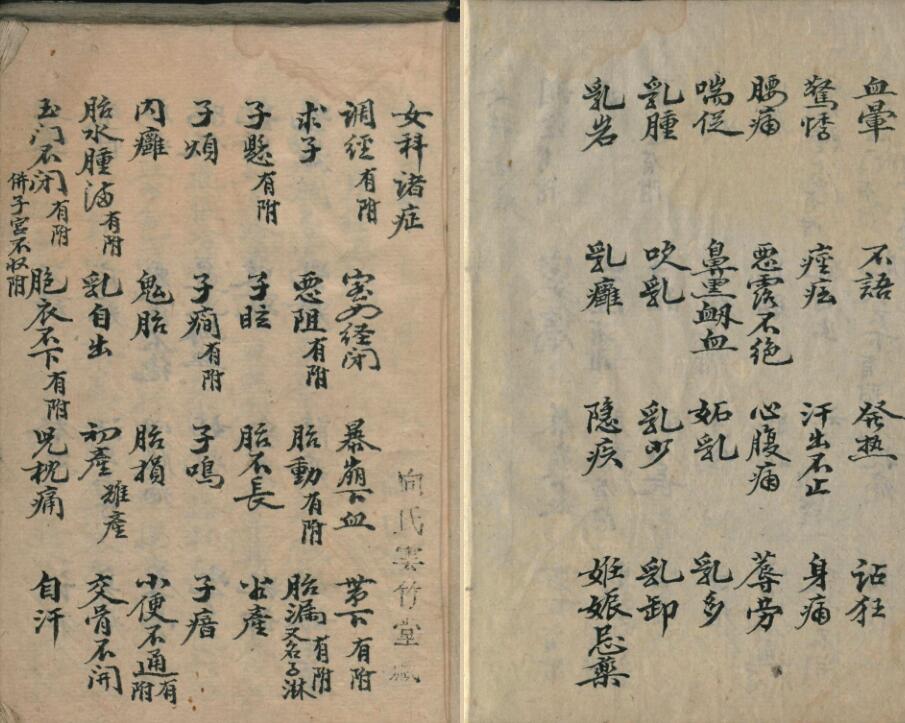 女科诸症
调经有附 室女经闭 暴崩下血 带下有附
求子 恶阻有附 胎動有附 胎漏有附又名子淋
子懸有附 子眩 胎不長 半產
子煩 子痫有附 子鳴 子瘖
内癰 鬼胎 胎損 小便不通有附
胎水腫满有附 乳自出 初產 雖產 交骨不開
玉门不闭有附 胞衣不下有附 兒枕痛 自汗
併子宫不収附
向氏雲竹堂藏
血暈 不語 發热 詀狂
驚悸 汗出不止 身痛
腰痛 恶露不绝 心腹痛 蓐劳
喘促 鼻黑衂血 妬乳 乳多
乳腫 吹乳 乳少 乳卸
乳岩 乳癰 隐疾 妊娠忌藥